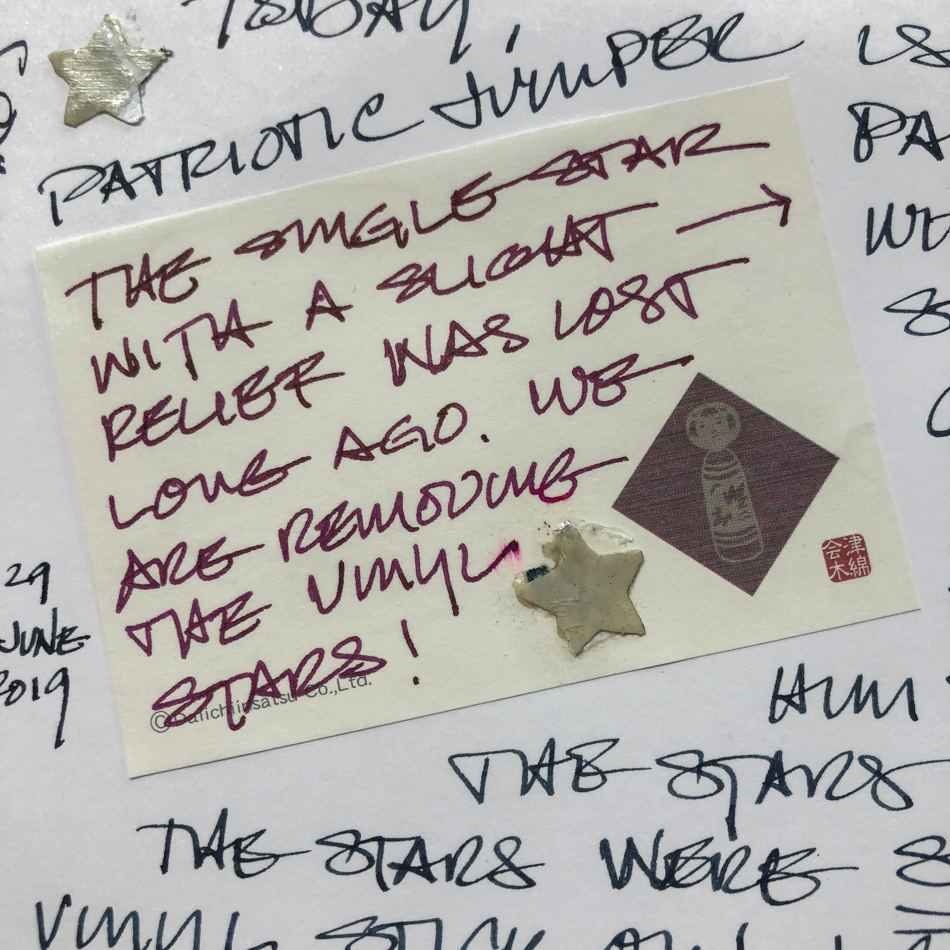 TODAY,
PATRIOTIC JUMPER
THE SINGLE STAR
WITH A SLIGHT →
RELIEF WAS LOST
LONG AGO. WE
ARE REMOVING
THE VINYL
STARS!
©Daiichiinsatsu Co.,Ltd.
会津
木綿
29
JUNE
2019
IS
PA
WE
S
HIM
THE STARS
THE STARS WERE S
VINYL STICK ON